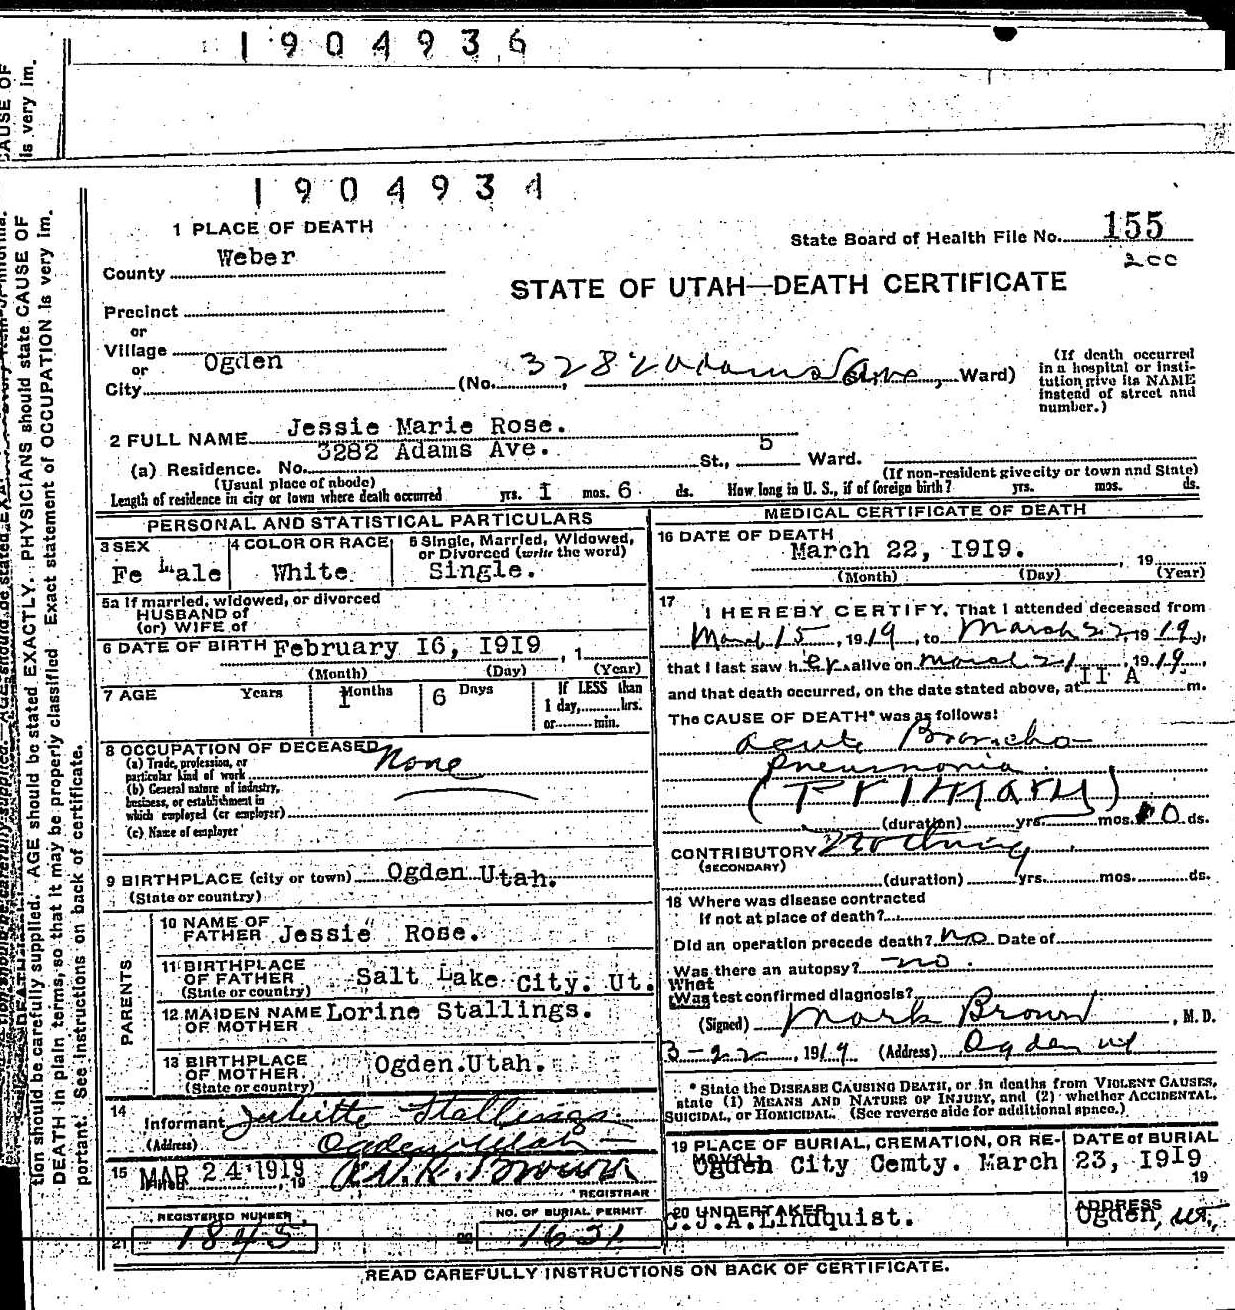 1904936
CAUSE OF
is very im.
1904934
1 PLACE OF DEATH
County Weber
State Board of Health File No. 155
200
STATE OF UTAH—DEATH CERTIFICATE
Precinct
or
Village
or
City Ogden (No. 3282 Adams Ave, Ward)
(If death occurred
in a hospital or insti-
tution give its NAME
instead of street and
number.)
2 FULL NAME Jessie Marie Rose.
(a) Residence. No. 3282 Adams Ave. St., 5 Ward.
(Usual place of abode) (If non-resident give city or town and State)
Length of residence in city or town where death occurred yrs. 1 mos. 6 ds. How long in U. S., if of foreign birth? yrs. mos. ds.
PERSONAL AND STATISTICAL PARTICULARS
3 SEX Fe male
4 COLOR OR RACE White
5 Single, Married, Widowed,
or Divorced (write the word)
Single.
5a If married, widowed, or divorced
HUSBAND of
(or) WIFE of
6 DATE OF BIRTH February 16, 1919, 1
(Month) (Day) (Year)
7 AGE Years 1 Months 6 Days
If LESS than
1 day, hrs.
or min.
8 OCCUPATION OF DECEASED None
(a) Trade, profession, or
particular kind of work
(b) General nature of industry,
business, or establishment in
which employed (or employer)
(c) Name of employer
9 BIRTHPLACE (city or town) Ogden Utah.
(State or country)
PARENTS
10 NAME OF
FATHER Jessie Rose.
11 BIRTHPLACE
OF FATHER Salt Lake City. Ut.
(State or country)
12 MAIDEN NAME
OF MOTHER Lorine Stallings.
13 BIRTHPLACE
OF MOTHER. Ogden.Utah.
(State or country)
14
Informant Juliette Stallings
(Address) Ogden Utah
15 MAR 24 1919, 19
REGISTRAR
REGISTERED NUMBER
21 1845
NO. OF BURIAL PERMIT
1631
MEDICAL CERTIFICATE OF DEATH
16 DATE OF DEATH
March 22, 1919. , 19
(Month) (Day) (Year)
17
I HEREBY CERTIFY, That I attended deceased from
March 15, 1919, to March 22 1919,
that I last saw her alive on March 21, 1919,
and that death occurred, on the date stated above, at 11 A m.
The CAUSE OF DEATH* was as follows:
acute Broncho
pneumonia
(PRIMARY)
(duration) yrs. mos. 10 ds.
CONTRIBUTORY Nothing
(SECONDARY)
(duration) yrs. mos. ds.
18 Where was disease contracted
if not at place of death?
Did an operation precede death? No Date of
Was there an autopsy? no.
What
Was test confirmed diagnosis?
(Signed) Mark Brown, M. D.
3-22, 1919 (Address) Ogden ut
* State the DISEASE CAUSING DEATH, or in deaths from VIOLENT CAUSES,
state (1) MEANS AND NATURE OF INJURY, and (2) whether ACCIDENTAL,
SUICIDAL, or HOMICIDAL. (See reverse side for additional space.)
19 PLACE OF BURIAL, CREMATION, OR RE-
MOVAL
Ogden City Cemty. March
DATE of BURIAL
23, 1919
19
20 UNDERTAKER
C.J.A.Lindquist.
ADDRESS
Ogden, ut.,
READ CAREFULLY INSTRUCTIONS ON BACK OF CERTIFICATE.
tion should be carefully supplied. AGE should be stated EXACTLY. PHYSICIANS should state CAUSE OF
DEATH in plain terms, so that it may be properly classified. Exact statement of OCCUPATION is very im-
portant. See instructions on back of certificate.